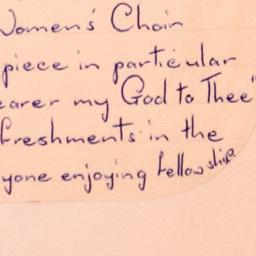 Women's Choir
piece in particular
earer my God to Thee"
freshments in the
yone enjoying fellowship.